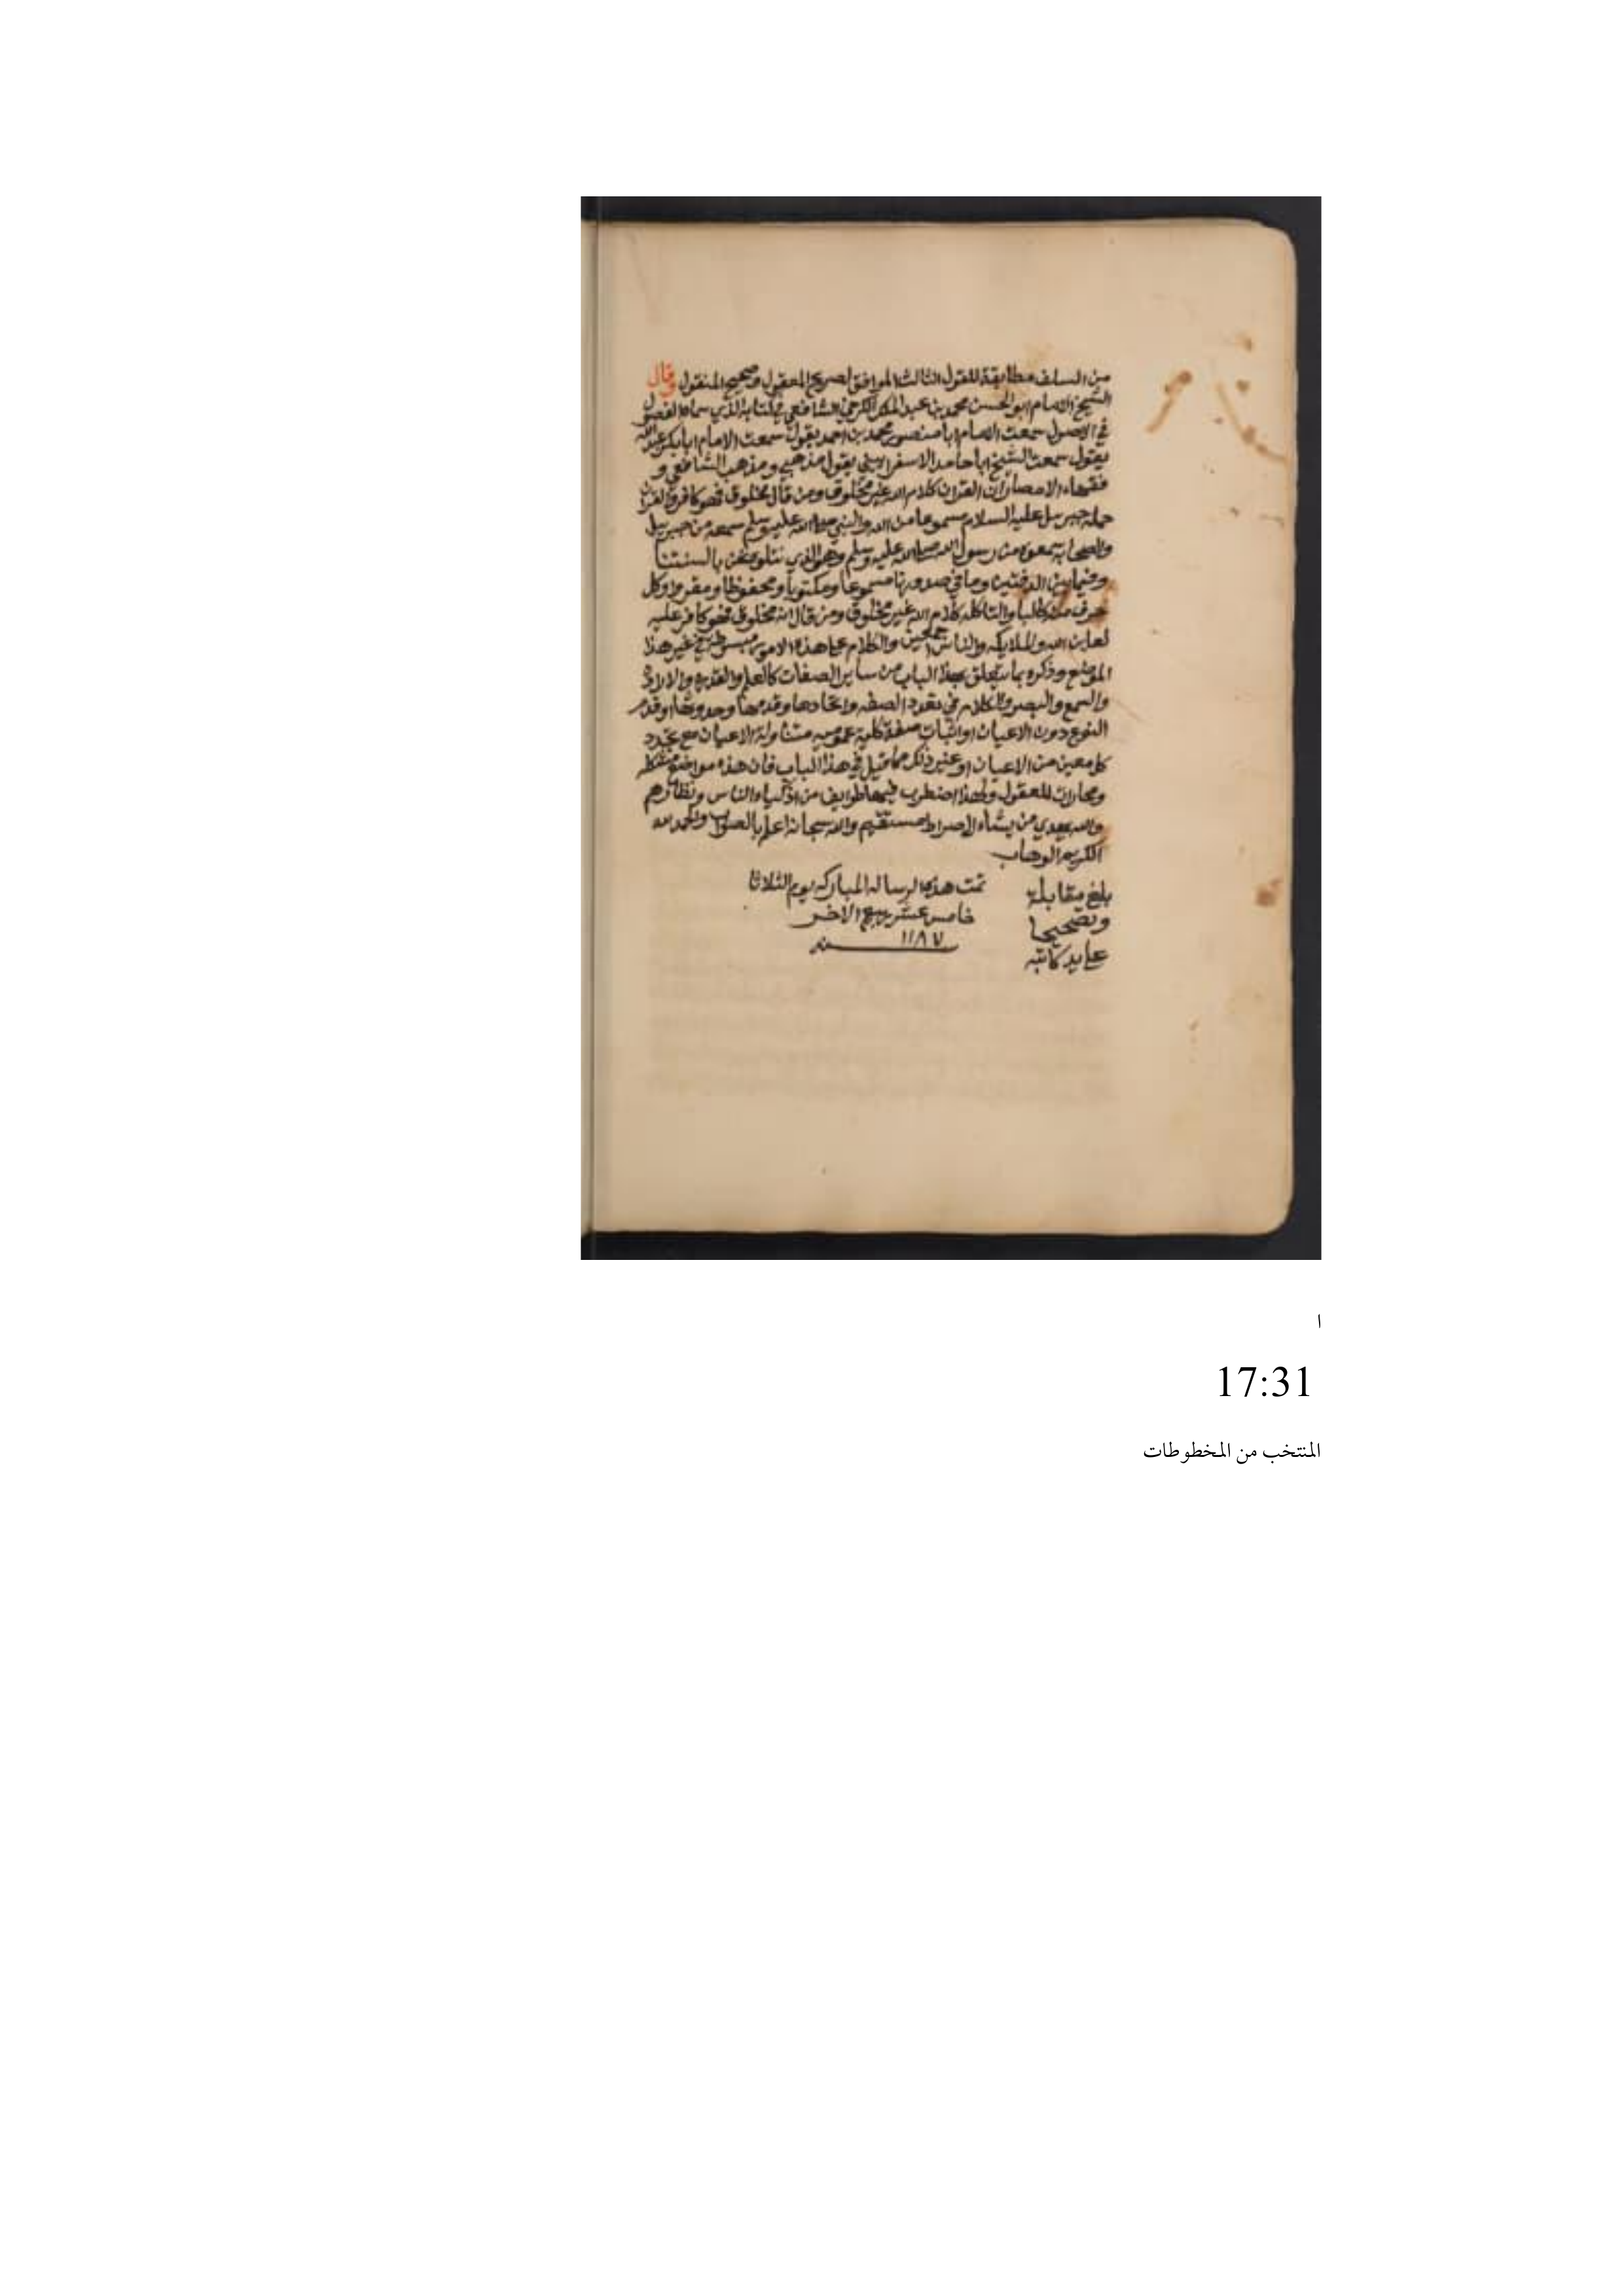 من السلف مطابقة للقول الثالث الموافق لصريح المعقول وصحيح المنقول وقال
الشيخ الامام ابو الحسن محمد بن عبد الملك الكرجي الشافعي في كتابه الذي سماه الفصول
في الاصول سمعت الامام ابا منصور محمد بن احمد يقول سمعت الامام ابا بكر عبد الله
يقول سمعت الشيخ ابا حامد الاسفرايني يقول مذهبي ومذهب الشافعي و
فقهاء الامصار ان القران كلام الله غير مخلوق ومن قال مخلوق فهو كافر والقران
حمله جبريل عليه السلام مسموعا من الله والنبي صلى الله عليه وسلم سمعه من جبريل
والصحابه سمعوه من رسول الله صلى الله عليه وسلم وهو الذي نتلوه نحن بالسنتنا
وفيما بين الدفتين وما في صدورنا مسموعا ومكتوبا ومحفوظا ومقروا وكل
حرف منه كالباء والتا كله كلام الله غير مخلوق ومن قال انه مخلوق فهو كافر عليه
لعاين الله والملايكه والناس اجمعين والكلام على هذه الامور مبسوط في غير هذا
الموضع وذكره بما يتعلق بهذا الباب من ساير الصفات كالعلم والقدره والارادة
والسمع والبصر والكلام في تعدد الصفه واتحادها وقدمها وحدوثها وقدم
النوع دون الاعيان او اثبات صفة كلية عموميه متناولة الاعيان مع تجدد
كل معين من الاعيان او غير ذلك مما قيل في هذا الباب فان هذه مواضع مشكله
ومحارات للعقول ولهذا اضطرب فيها طوايف من اذكياء الناس ونظارهم
والله يهدي من يشاء الى صراط مستقيم والله سبحانه اعلم بالصواب والحمد لله
الكريم الوهاب
تمت هذه الرساله المباركه يوم الثلاثا
خامس عشر ربيع الاخر
١١٨٧
سنه
بلغ مقابلة
وتصحيحا
على يد كاتبه
ا
17:31
المنتخب من المخطوطات